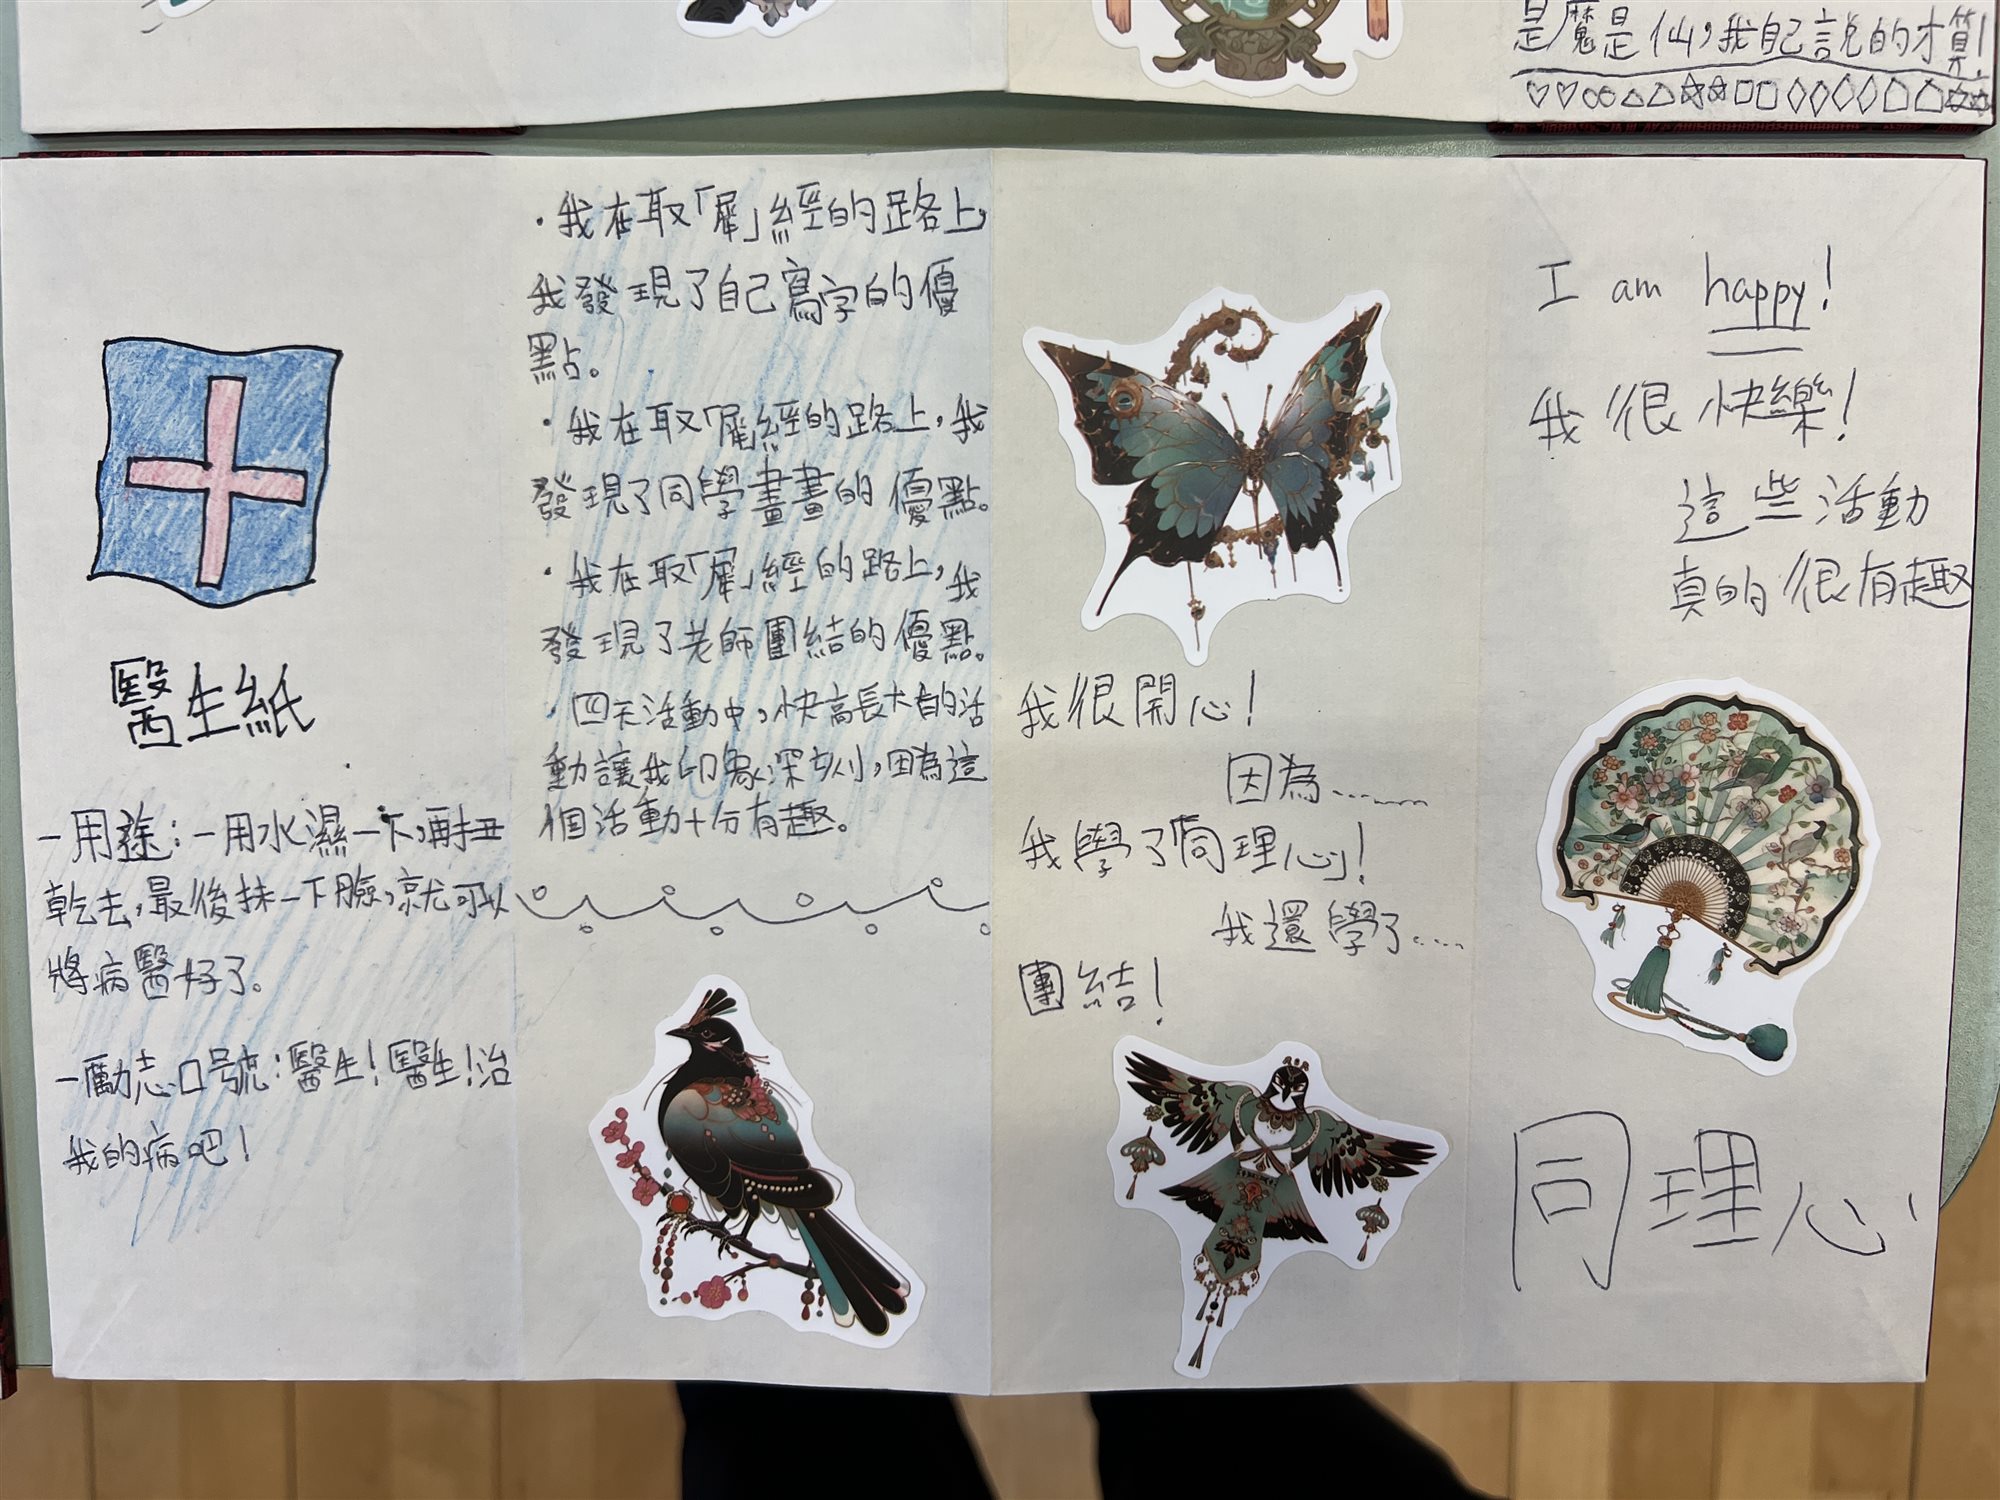 是魔是仙，我自己說的才算！
醫生紙
－用途：－用水濕一下，再扭
乾去，最後抹一下臉，就可以
將病醫好了。
－勵志口號：醫生！醫生！治
我的病吧！
·我在取「犀」經的路上，
我發現了自己寫字的優
點。
·我在取「犀」經的路上，我
發現了同學畫畫的優點。
·我在取「犀」經的路上，我
發現了老師團結的優點。
·四天活動中，快高長大的活
動讓我印象深刻，因為這
個活動十分有趣。
我很開心！
因為......
我學了同理心！
我還學了....
團結！
I am happy!
我很快樂！
這些活動
真的很有趣
同理心